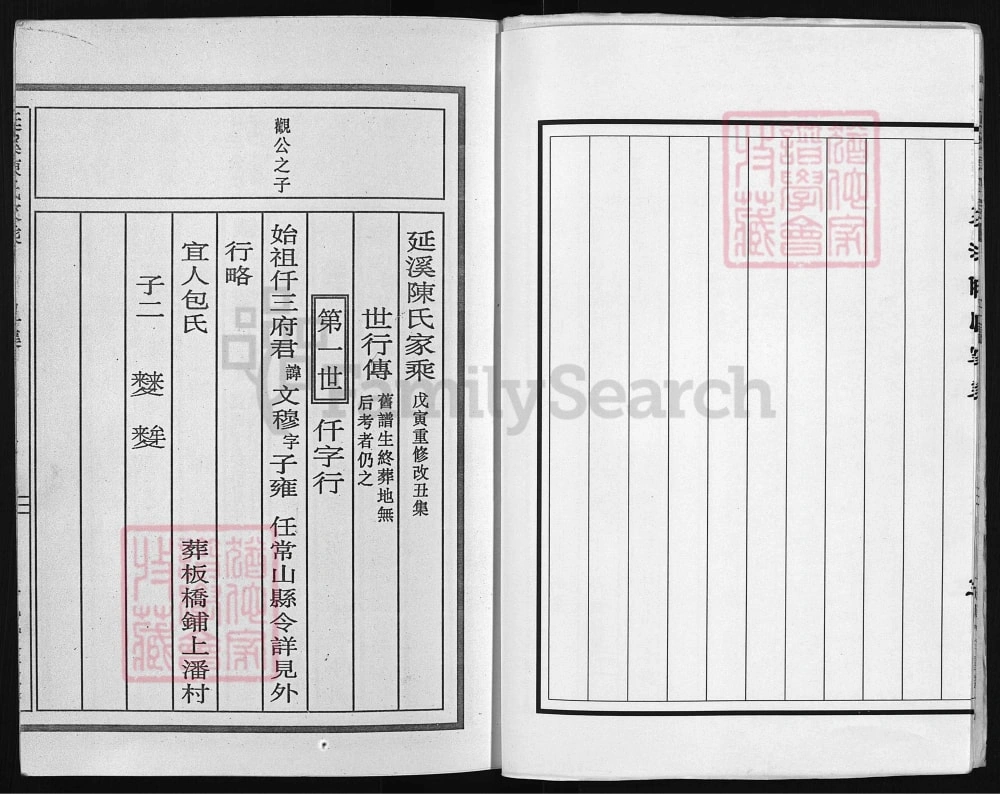 猶他家
譜學會
特藏
觀公之子
延溪陳氏家乘 戊寅重修改丑集
世行傳 舊譜生終葬地無
后考者仍之
第一世 仟字行
始祖仟三府君 諱文穆 字子雍 任常山縣令詳見外
行略
宜人包氏 葬板橋鋪上潘村
子二
猶他家
譜學會
特藏
FamilySearch